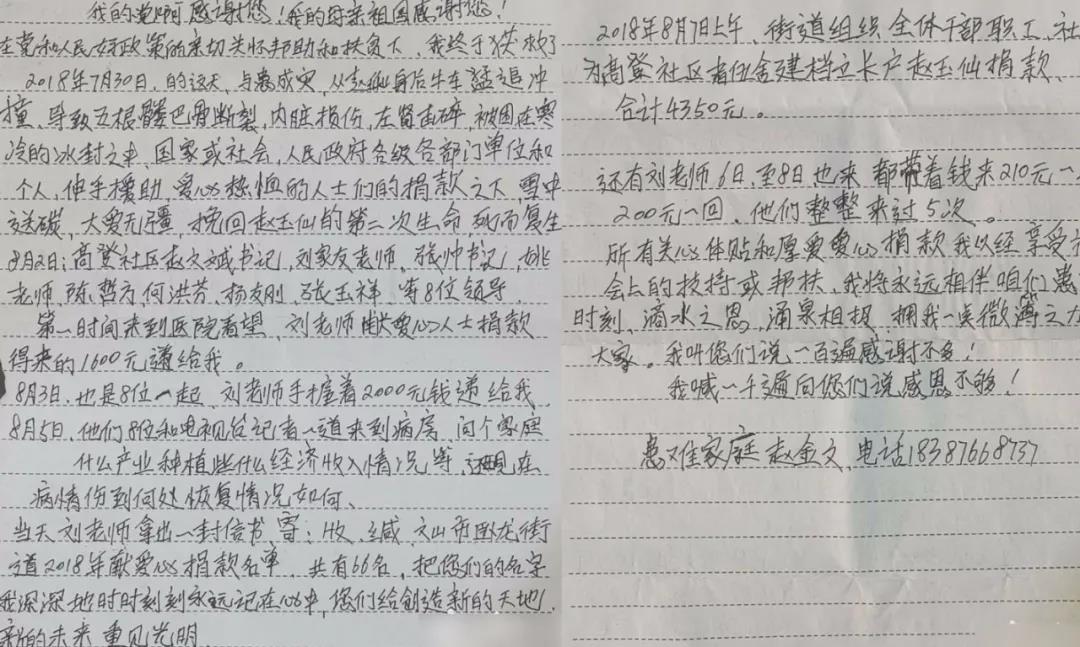 我的党啊感谢您！我的母亲祖国感谢您！
在党和人民好政策的亲切关怀帮助和扶贫下、我终于获救了
2018年7月30日、的这天、与患成灾、从赵仙身后牛车猛追冲
撞、导致五根髅巴骨断裂、内脏损伤、左肾击碎、被困在寒
冷的冰封之中、国家或社会、人民政府各级各部门单位和
个人、伸手援助、爱心热恤的人士们的捐款之下、雪中
送碳、大爱无疆、挽回赵玉仙的第二次生命 死而复生
8月2日；高登社区赵文斌书记、刘家友老师、张帅书记、姚
老师、陈哲方、何洪芳、杨友刚、张玉祥、等8位领导、
第一时间来到医院看望、刘老师献爱心人士捐款
得来的1600元递给我。
8月3日、也是8位一起、刘老师手握着2000元钱递给我、
8月5日、他们8位和电视台记者一道来到病房、问个家庭
什么产业种植些什么经济收入情况等、还现在
病情伤到何处恢复情况如何、
当天刘老师拿出一封信书、写；收、缄、文山市卧龙街
道2018年献爱心捐款名单、共有66名、把您们的名字
我深深地时时刻刻永远记在心中、您们给创造新的天地、
新的未来 重见光明
2018年8月7日上午、街道组织全体干部职工、社
为高登社区者伍舍建档立卡户赵玉仙捐款、
合计4350元。
还有刘老师6日、至8日也来 都带着钱来210元一
200元一回、他们整整来过5次。
所有关心体贴和厚爱爱心捐款我以经享受
会上的扶持或帮扶、我将永远相伴咱们患
时刻、滴水之恩、涌泉相报、拥我一点微薄之力
大家。我叫您们说一百遍感谢不多！
我喊一千遍向您们说感恩不够！
患难家庭 赵金文、电话18387668737